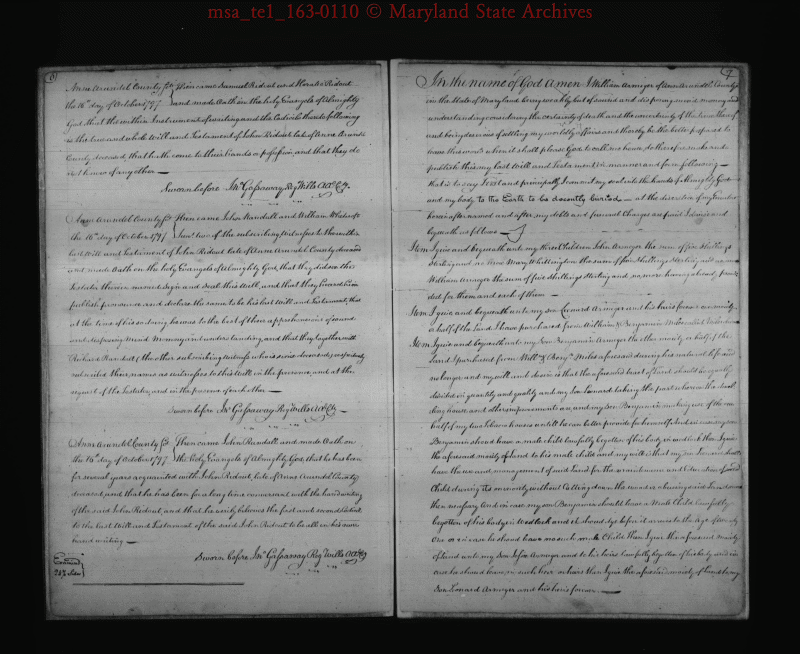 msa_te1_163-0110 © Maryland State Archives
6)
Anne Arundel County Sct. Then came Samuel Ridout and Horatio Ridout
the 16th day of October 1797 and made Oath on the holy Evangels of Almighty
God, that the within Instrument of writing and the Codicils thereto following
is the true and whole Will and Testament of John Ridout late of Anne Arundel
County deceased, that hath come to their hands or possession, and that they do
not know of any other —
Sworn before Jno Gassaway Reg Wills AA Cty.
Anne Arundel County Sct Then came John Randall and William
the 16th day of October 1797 two of the subscribing Witnesses to the within
last Will and Testament of John Ridout late of Anne Arundel County deceased
and made Oath on the holy Evangels of Almighty God, that they did see the
Testator therein named sign and seal this Will, and that they heard him
publish pronounce and declare the same to be his last Will and Testament, that
at the time of his so doing he was to the best of their apprehensions of sound
and disposing Mind Memory and understanding, and that they together with
Richard Randall (the other subscribing witness who is since deceased) respectively
subscribed their names as witnesses to this Will in the presence, and at the
request of the Testator, and in the presence of each other —
Sworn before Jno Gassaway Reg Wills AA Cty —
Anne Arundel County Sct Then came John Randall and made Oath on
the 16th day of October 1797 the holy Evangels of Almighty God, that he has been
for several years acquainted with John Ridout, late of Anne Arundel County
deceased, and that he has been for a long time conversant with the hand writing
of the said John Ridout and that he verily believes the first and second Codicil
to the last Will and Testament of the said John Ridout to be all in his own
hand writing —
Sworn before Jno Gassaway Reg Wills AA Cty
Examined
(7
In the name of God Amen I William Armiger of Ann Arundel County
in the State of Maryland being weakly but of sound and disposing mind memory and
understanding considering the certainty of death and the uncertainty of the time thereof
and being desirous of settling my worldly affairs and thereby be the better prepared to
leave this world when it shall please God to call me home do therefore make and
publish this my last Will and Testament in manner and form following —
that is to say First and principally I commit my soul into the hands of Almighty God
and my body to the Earth to be decently buried — at the discretion of my Executor
herein after named and after my debts and funeral Charges are paid I devise and
bequeath as follows —
Item I give and bequeath unto my three Children John Armiger the sum of five shillings
sterling and no more Mary Whittington the sum of five shillings sterling and no more
William Armiger the sum of five Shillings sterling and no more having already provi
ded for them and each of them —
Item I give and bequeath unto my son Leonard Armiger and his heirs forever one moiety
or half of the Land I have purchased from William & Benjamin
Item I give and bequeath unto my Son Benjamin Armiger the other moiety or half of the
Land I purchased from Willm & Benjn aforesaid during his natural life and
no longer and my will and desire is that the aforesaid tract of Land should be equally
divided in quantity and quality and my Son Leonard taking the part whereon the dwel
ling house and other improvements are, and my Son Benjamin making use of the one
half of my tobacco houses untill he can better provide for himself and in case my son
Benjamin should have a male child lawfully begotten of his body in wedlock then I give
the aforesaid moiety of land to his male child and my will is that my son Leonard should
have the use and management of said land for the maintenance and Education of said
Child during its minority without Cutting down the wood or abusing said land more
than necessary and in case my son Benjamin should have a Male Child lawfully
begotten of his body in wedlock and it should dye before it arrives to the Age of twenty
one or in case he should have no such male Child Then I give the aforesaid moiety
of land unto my Son Armiger and to his heirs lawfully begotten of his body and in
case he should have no such heir or heirs then I give the aforesaid moiety of land to my
Son Leonard Armiger and his heirs forever —